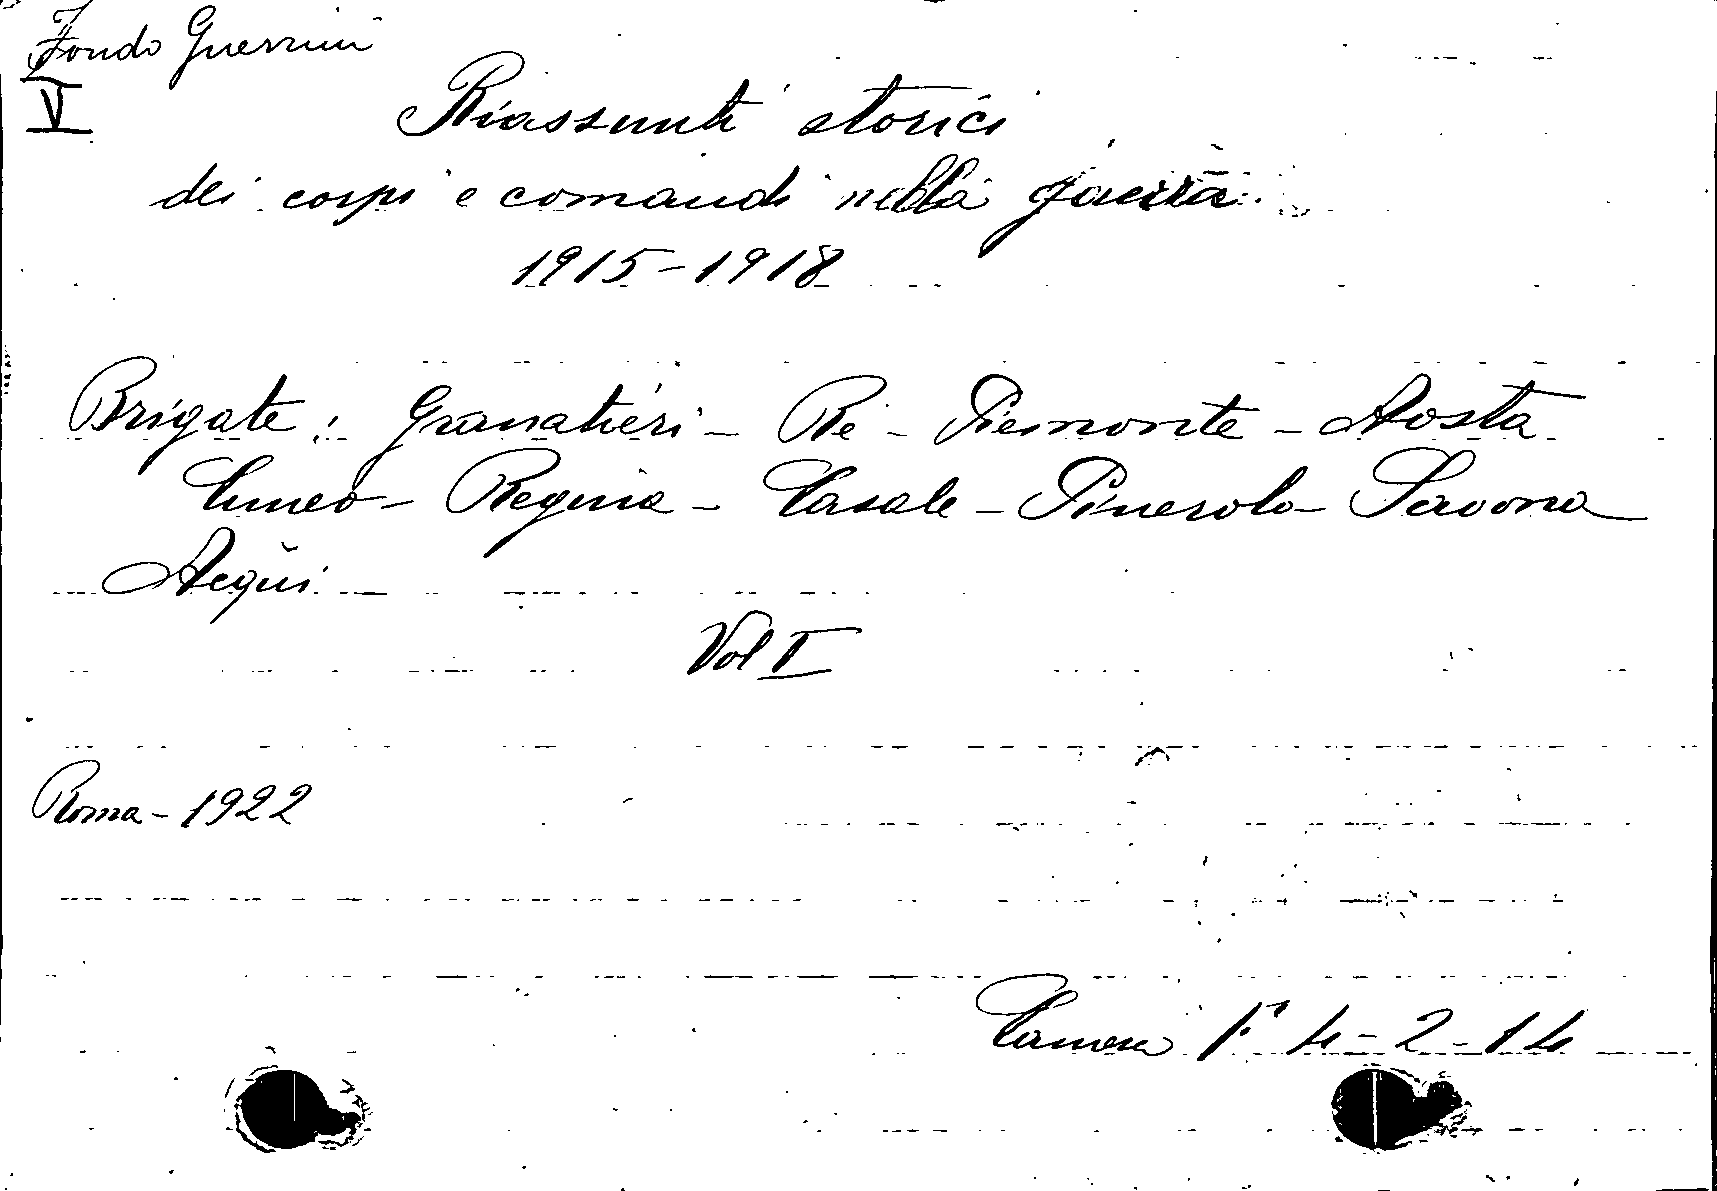 Fondo Guerrini
V
Riassunti storici
dei corpi e comandi nella guerra
1915-1918
Brigate: Granatieri - Re - Piemonte - Aosta
Cuneo - Regina - Casale - Pinerolo - Savona
Acqui
Vol I
Roma - 1922
Camera 1ª 4-2-14